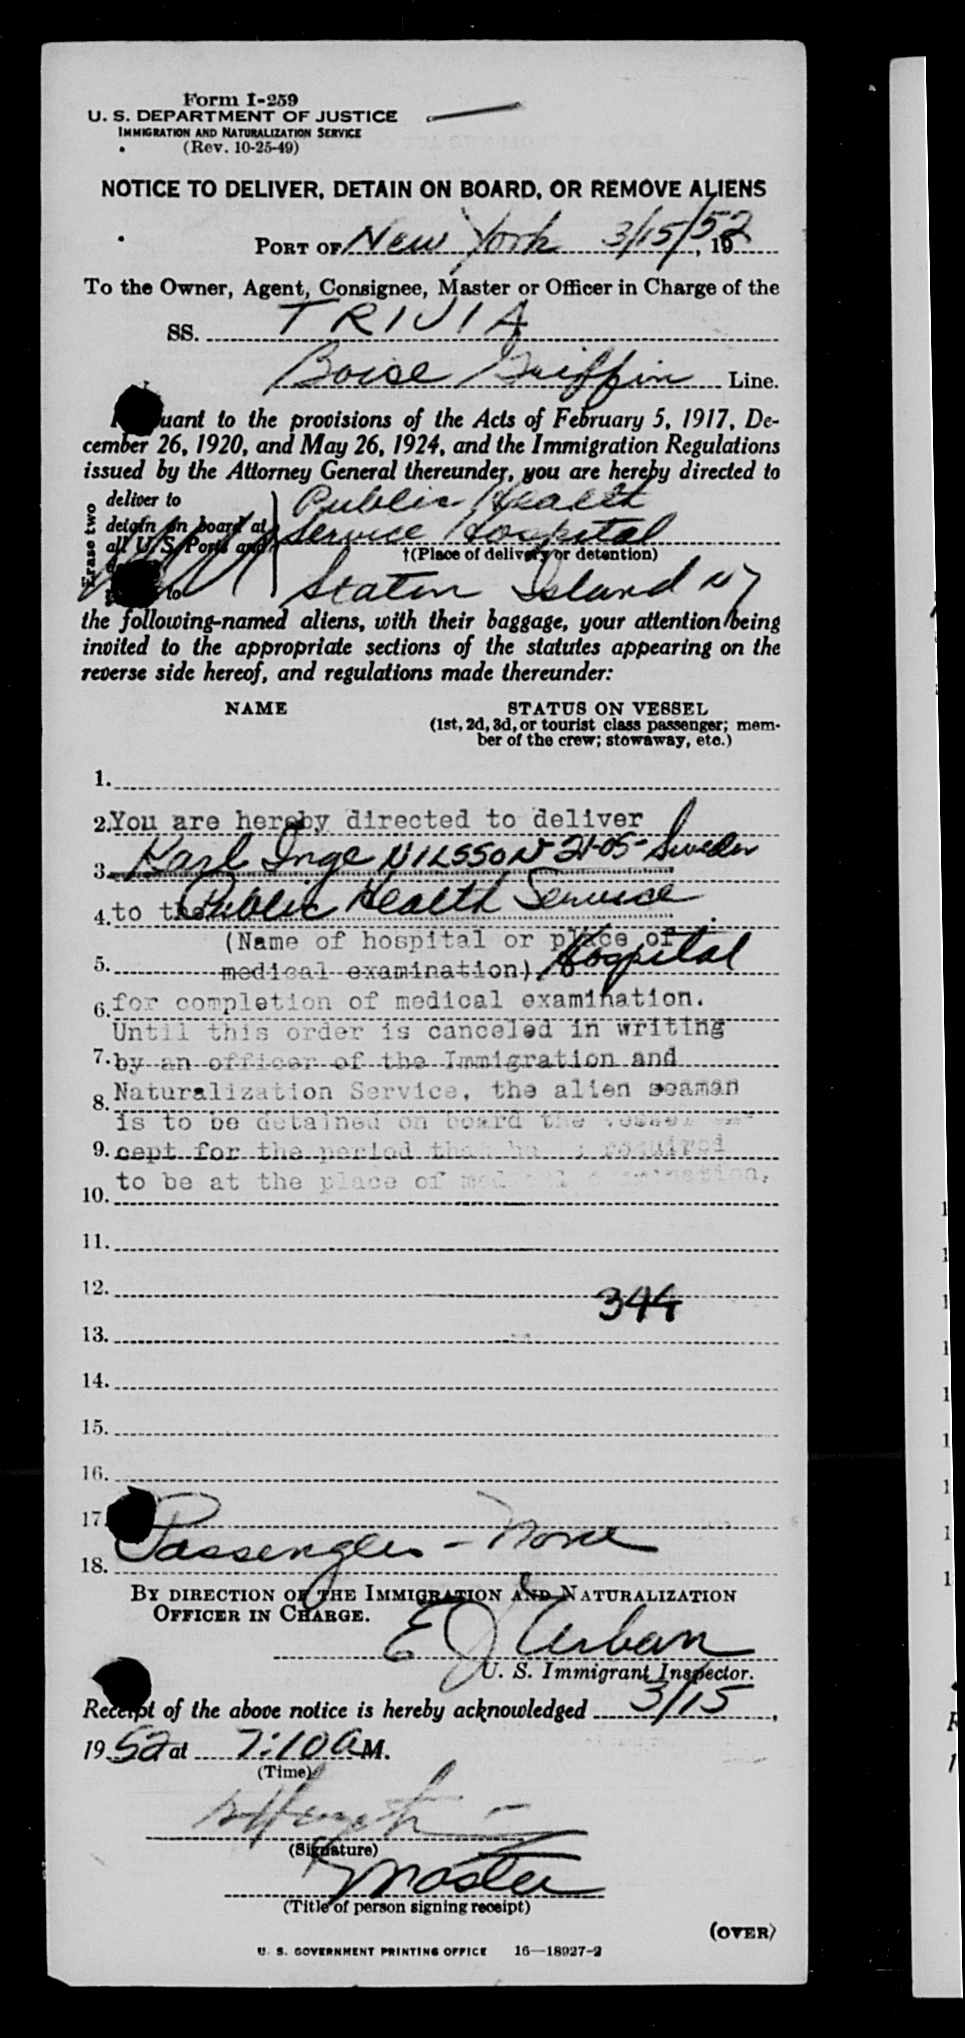 Form I-259
U. S. DEPARTMENT OF JUSTICE
IMMIGRATION AND NATURALIZATION SERVICE
(Rev. 10-25-49)
NOTICE TO DELIVER, DETAIN ON BOARD, OR REMOVE ALIENS
PORT OF New York 3/15/52, 19
To the Owner, Agent, Consignee, Master or Officer in Charge of the
SS. TRIVIA
Boise Griffin Line.
uant to the provisions of the Acts of February 5, 1917, De-
cember 26, 1920, and May 26, 1924, and the Immigration Regulations
issued by the Attorney General thereunder, you are hereby directed to
Erase two
deliver to
detain on board at
all U. S. Ports and
to
Public Health
Service Hospital
†(Place of delivery or detention)
Staten Island NY
the following-named aliens, with their baggage, your attention being
invited to the appropriate sections of the statutes appearing on the
reverse side hereof, and regulations made thereunder:
NAME STATUS ON VESSEL
(1st, 2d, 3d, or tourist class passenger; mem-
ber of the crew; stowaway, etc.)
1.
2. You are hereby directed to deliver
3. Karl Inge NILSSON 21-05- Sweden
4. to the Public Health Service .
(Name of hospital or place of
5. medical examination), Hospital
6. for completion of medical examination.
Until this order is canceled in writing
7. by an officer of the Immigration and
Naturalization Service, the alien seaman
8.
is to be detained on board the vessel ex-
9. cept for the period that he is required
to be at the place of medical examination.
10.
11.
12.
344
13.
14.
15.
16.
17.
Passengers - None
18.
BY DIRECTION OF THE IMMIGRATION AND NATURALIZATION
OFFICER IN CHARGE.
E J Urban
U. S. Immigrant Inspector.
Receipt of the above notice is hereby acknowledged 3/15,
1952 at 7:10 A M.
(Time)
(Signature)
Master
(Title of person signing receipt)
(OVER)
U. S. GOVERNMENT PRINTING OFFICE 16—18927-2